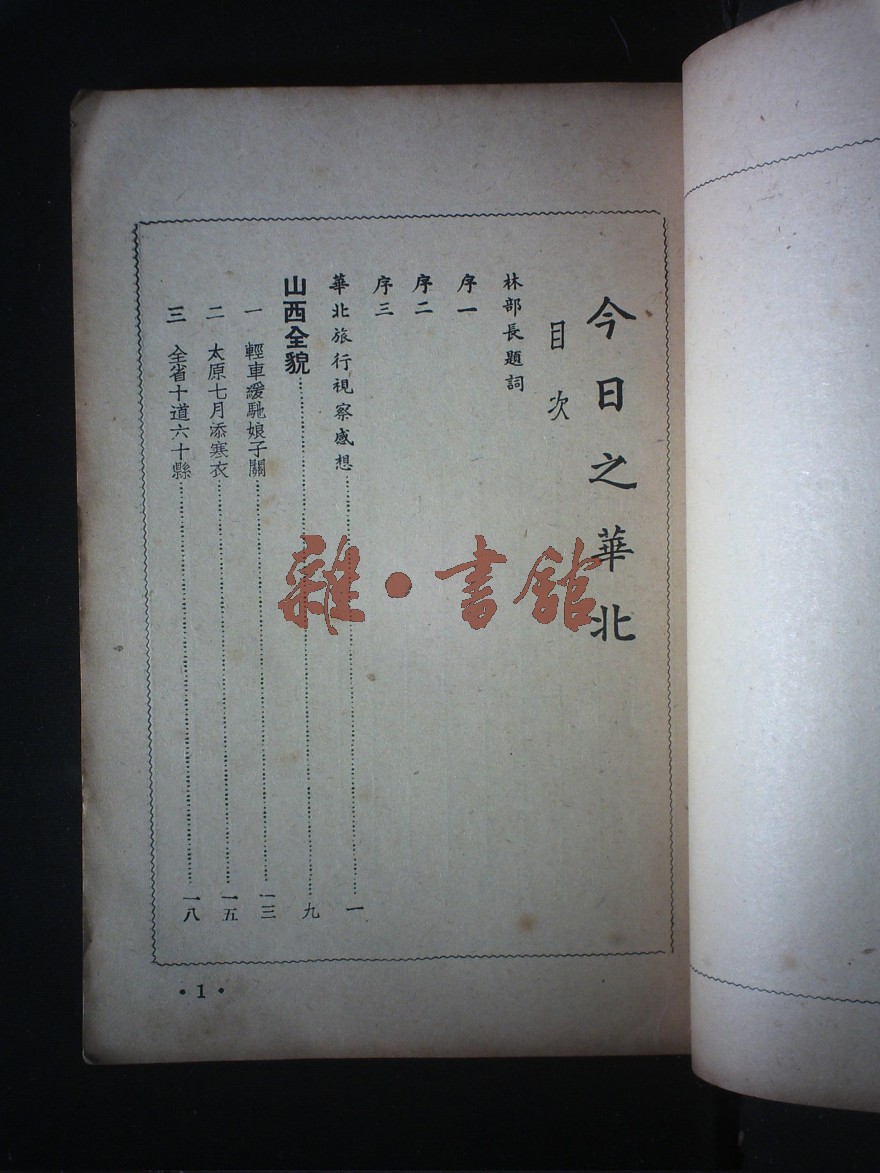 今日之華北
目次
林部長題詞
序一
序二
序三
華北旅行視察感想……一
山西全貌……九
一 輕車緩馳娘子關……一三
二 太原七月添寒衣……一五
三 全省十道六十縣……一八
•1•
雜•書館